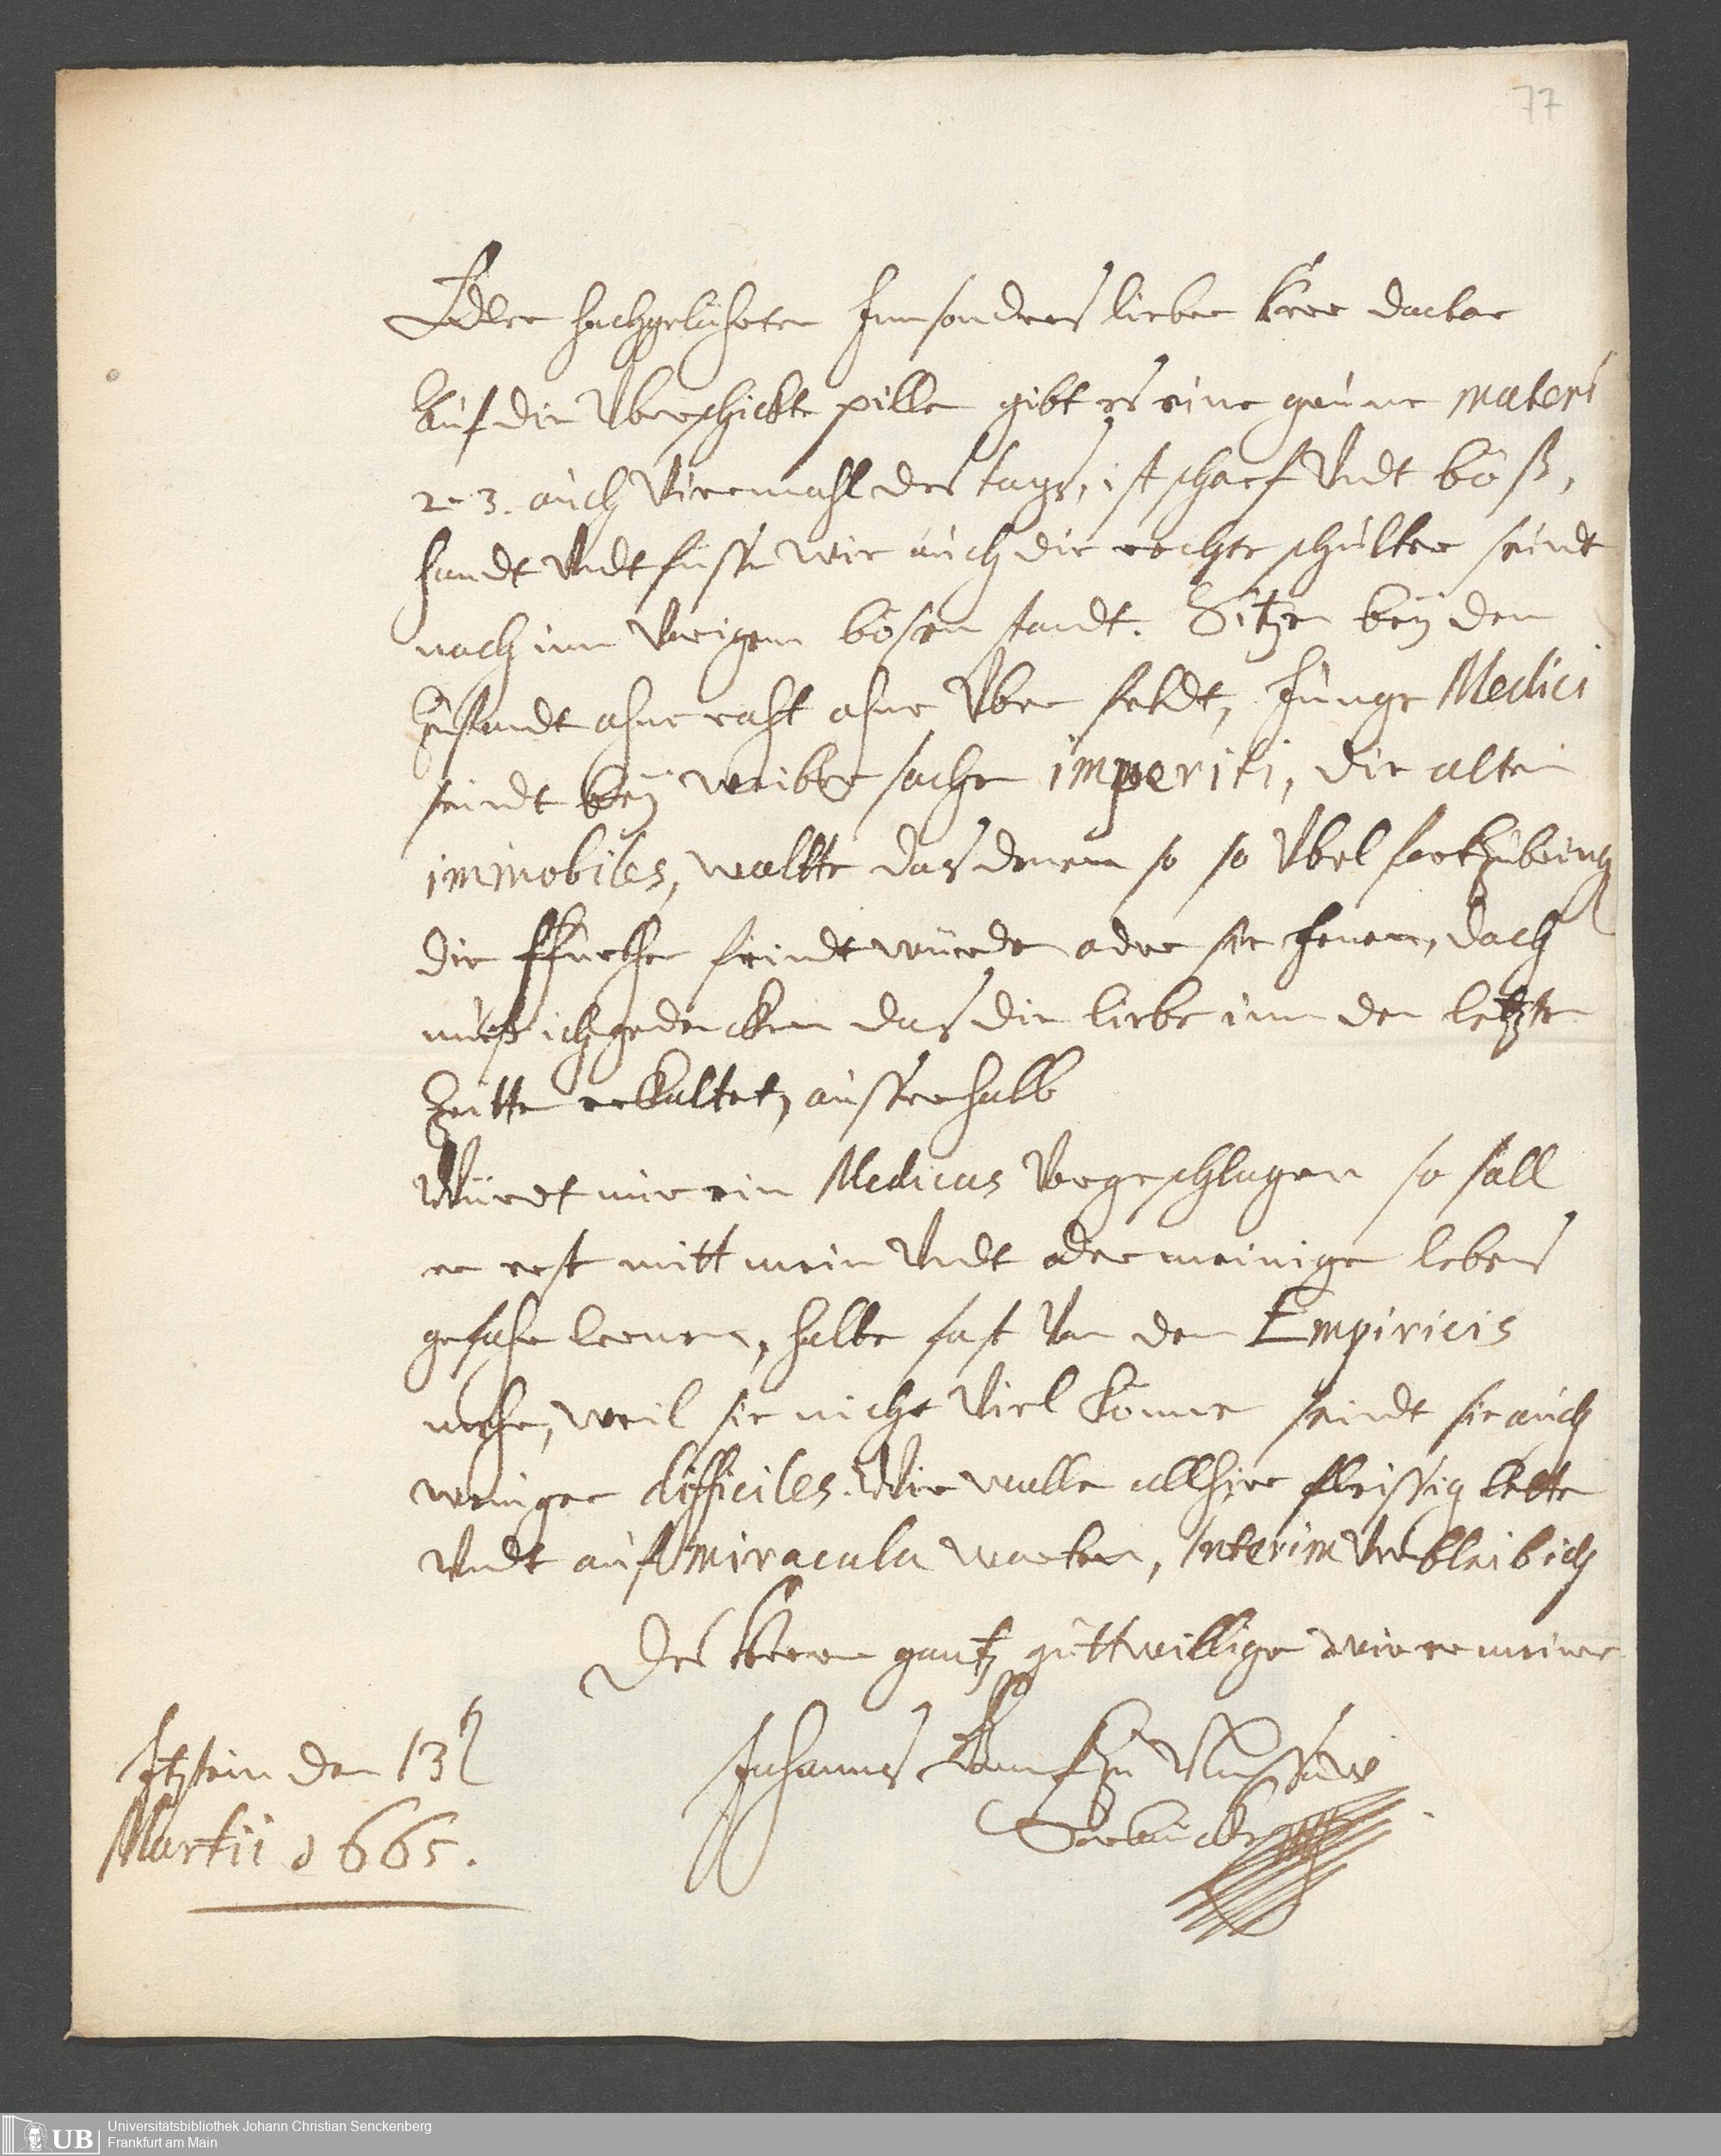 77
Edler hochgelührter Innsonders lieber herr docktor
Auf die Uberschickte pille gibt es eine grüne materi
2 - 3. auch Viermahl des tags, ist scharf Undt böß,
handt Undt füsse wie auch die rechte schulter seindt
noch inn Vorigem bösen standt. Sitze beÿ dem
Zustandt ohne raht ohne Uber seldt, Junge Medici
seindt beÿ weiber sache imperiti, die alte
immobiles, wolte das denen so so Ubel fortzubring
die seindt würde oder sie doch
muß ich gedencken das die liebe inn den letzten
Zeitten erkaltet, ausserhalb
Würdt mir ein Medicus Vorgeschlagen so soll
er erst mitt mein Undt oder meinige lebens
gefahr lernen, halte fast Von den Empiricis
mehr, weil sie nicht Viel könne seindt sie auch
weniger difficiles. Wir wolle allhier fleissig bette
Undt auf miracula warten, Interim Verbleib ich
Des herrn gantz guttwilliger
Johannes Graf zu Nassaw
Sarbrücken
Itzstein den 13
Martii 1665.
UB
Universitätsbibliothek Johann Christian Senckenberg
Frankfurt am Main